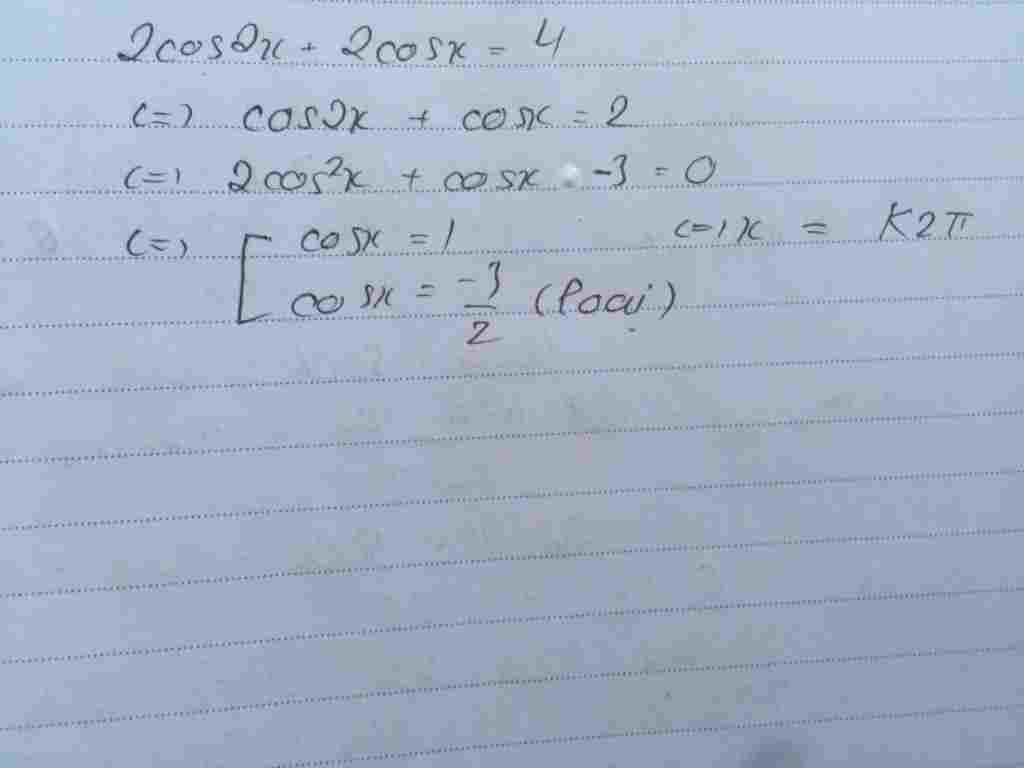 2cos2x + 2cosx = 4
(=) cos2x + cosx = 2
(=) 2cos²x + cosx -3 = 0
(=) [ cosx = 1 (=) x = K2π
cosx = -3/2 (loại)